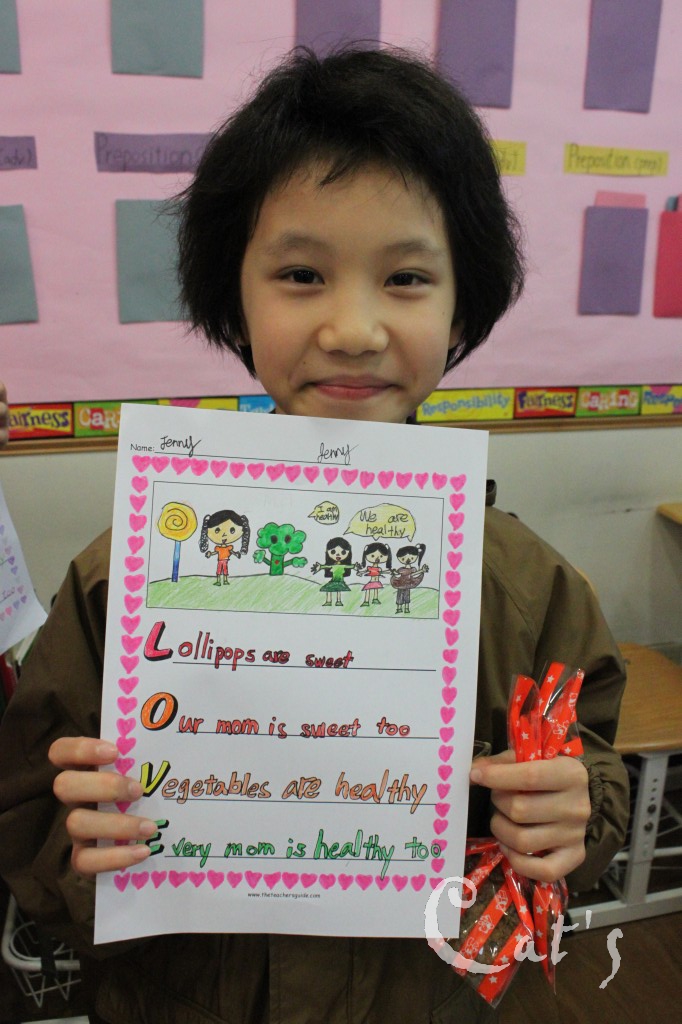 Preposition
Preposition (prep)
Fairness
Caring
Responsibility
Fairness
Caring
Name: Jenny Jenny
I am healthy
We are healthy
Lollipops are sweet
Our mom is sweet too
Vegetables are healthy
Every mom is healthy too
www.theteachersguide.com
Cat's